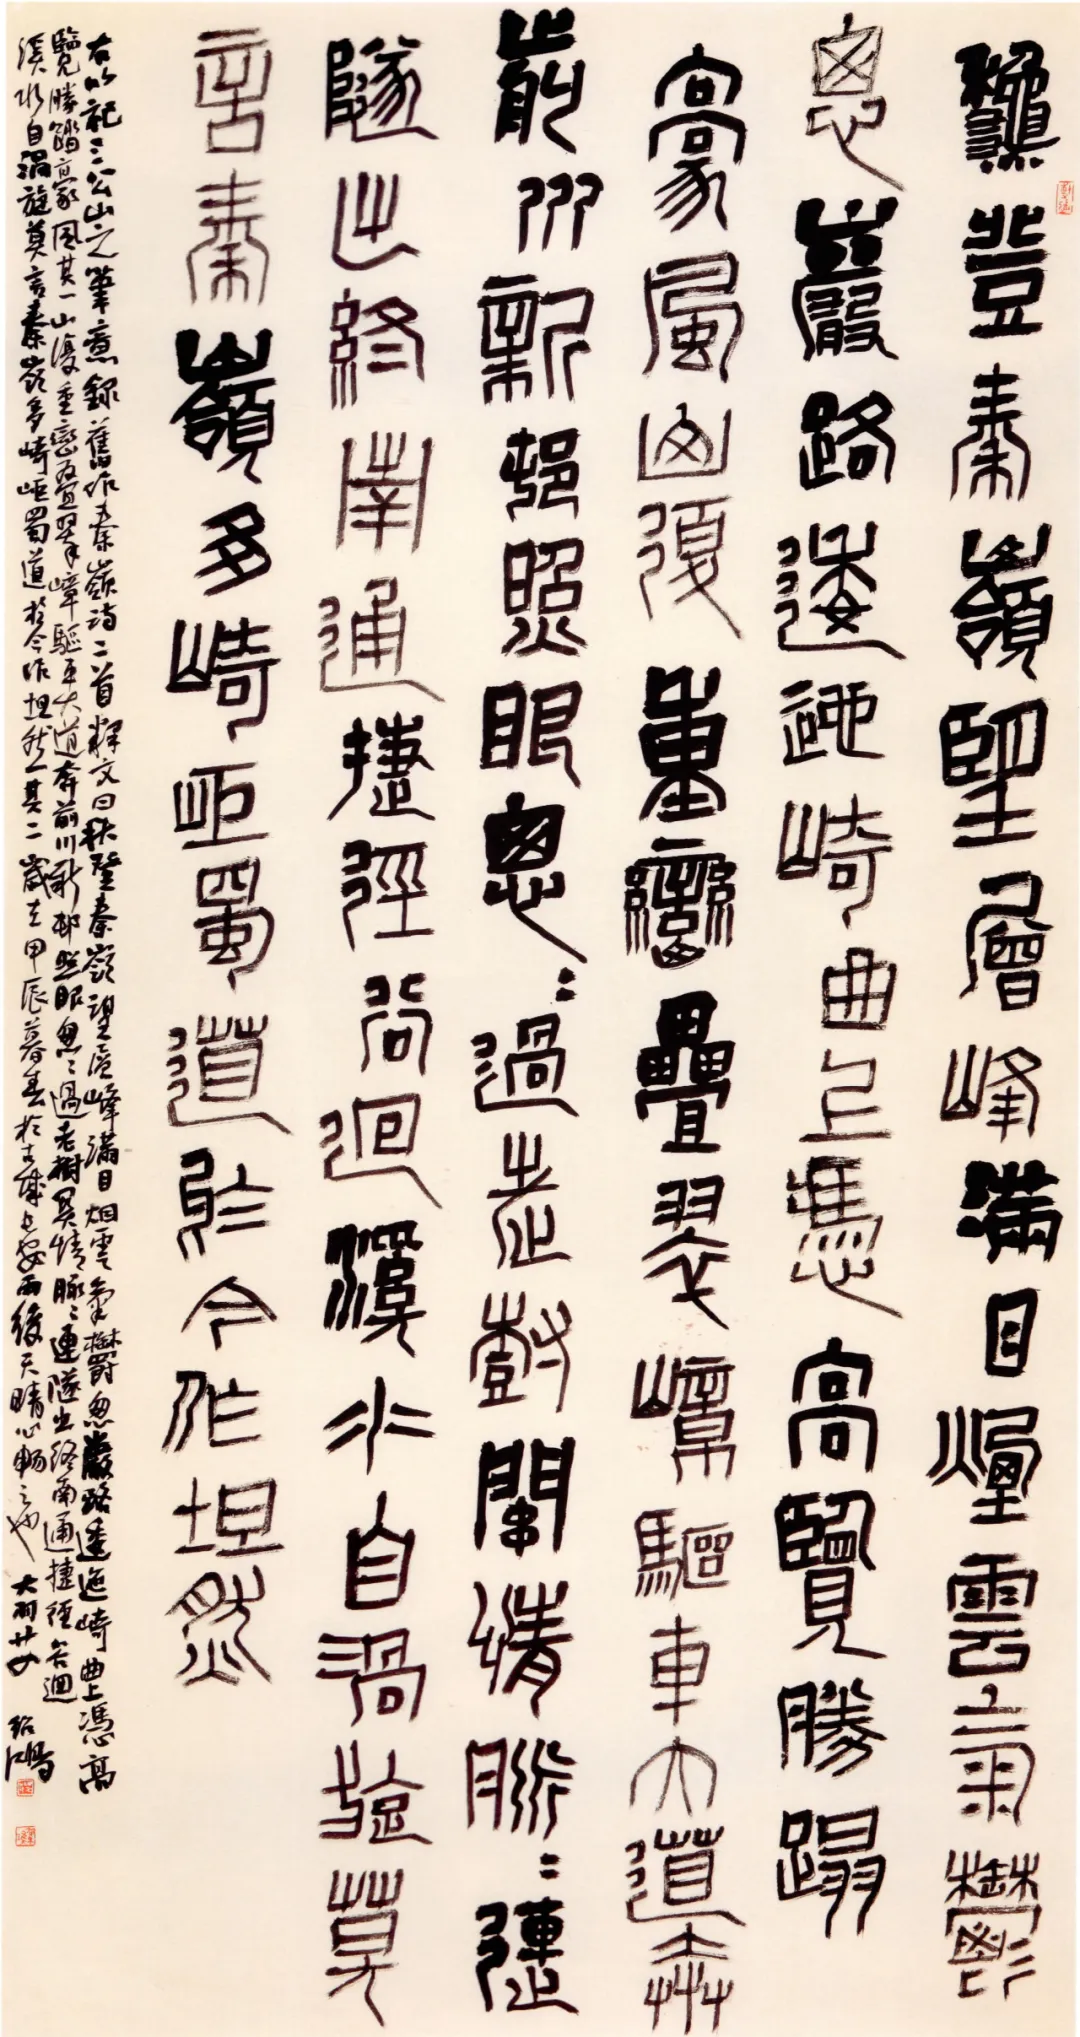 龝登秦嶺望層峰滿目煙雲氣鬱
怱巖路逶迤崎曲上馮高覽勝蹋
豪風山復重巒疊翠嶂驅車大道奔
前川新邨照眼怱〻過老樹閑情脈〻連
隧出終南通捷徑谷迴溪水自渦旋莫
言秦嶺多崎岠蜀道於今作坦然
右以祀三公山之筆意錄舊作秦嶺詩二首釋文曰秋登秦嶺望層峰滿目烟雲氣鬱怱巖路逶迤崎曲上馮高
覽勝蹋豪風其一山復重巒疊翠嶂驅車大道奔前川新邨照眼怱〻過老樹閑情脈〻連隧出終南通捷徑谷迴
溪水自渦旋莫言秦嶺多崎岠蜀道於今作坦然其二歲在甲辰暮春於古城長安雨後天晴心暢之也 大羽廿女 紹鴻